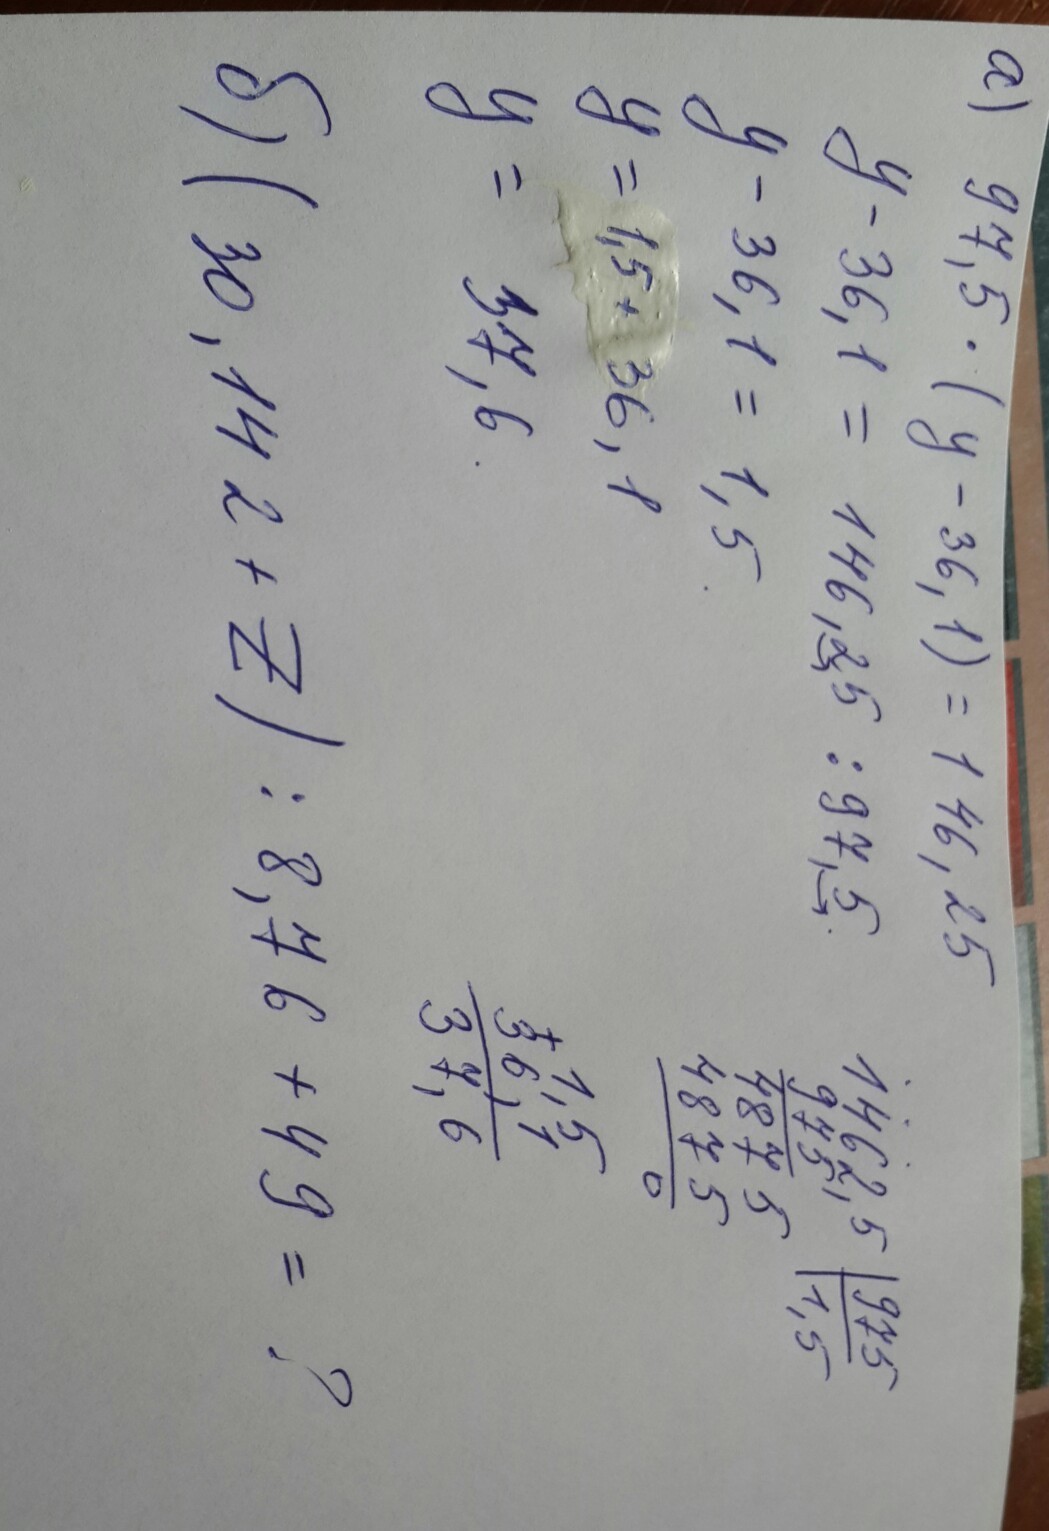 а) 97,5 · (y - 36,1) = 146,25
y - 36,1 = 146,25 : 97,5
y - 36,1 = 1,5
y = 1,5 + 36,1
y = 37,6
1462,5 | 975
975 | 1,5
4875
4875
0
+ 1,5
36,1
37,6
б) (30,142 + Z) : 8,76 + 49 = ?